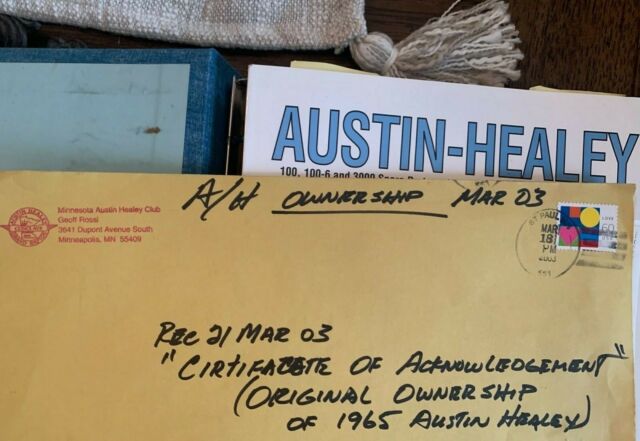 AUSTIN-HEALEY
100, 100-6 and 3000
A/H OWNERSHIP MAR 03
Minnesota Austin Healey Club
Geoff Rossi
3641 Dupont Avenue South
Minneapolis, MN 55409
AUSTIN-HEALEY
ST PAUL
MAR
18
PM
2003
LOVE
REC 21 MAR 03
"CIRTIFACETE OF ACKNOWLEDGEMENT"
(ORIGINAL OWNERSHIP
OF 1965 AUSTIN HEALEY)